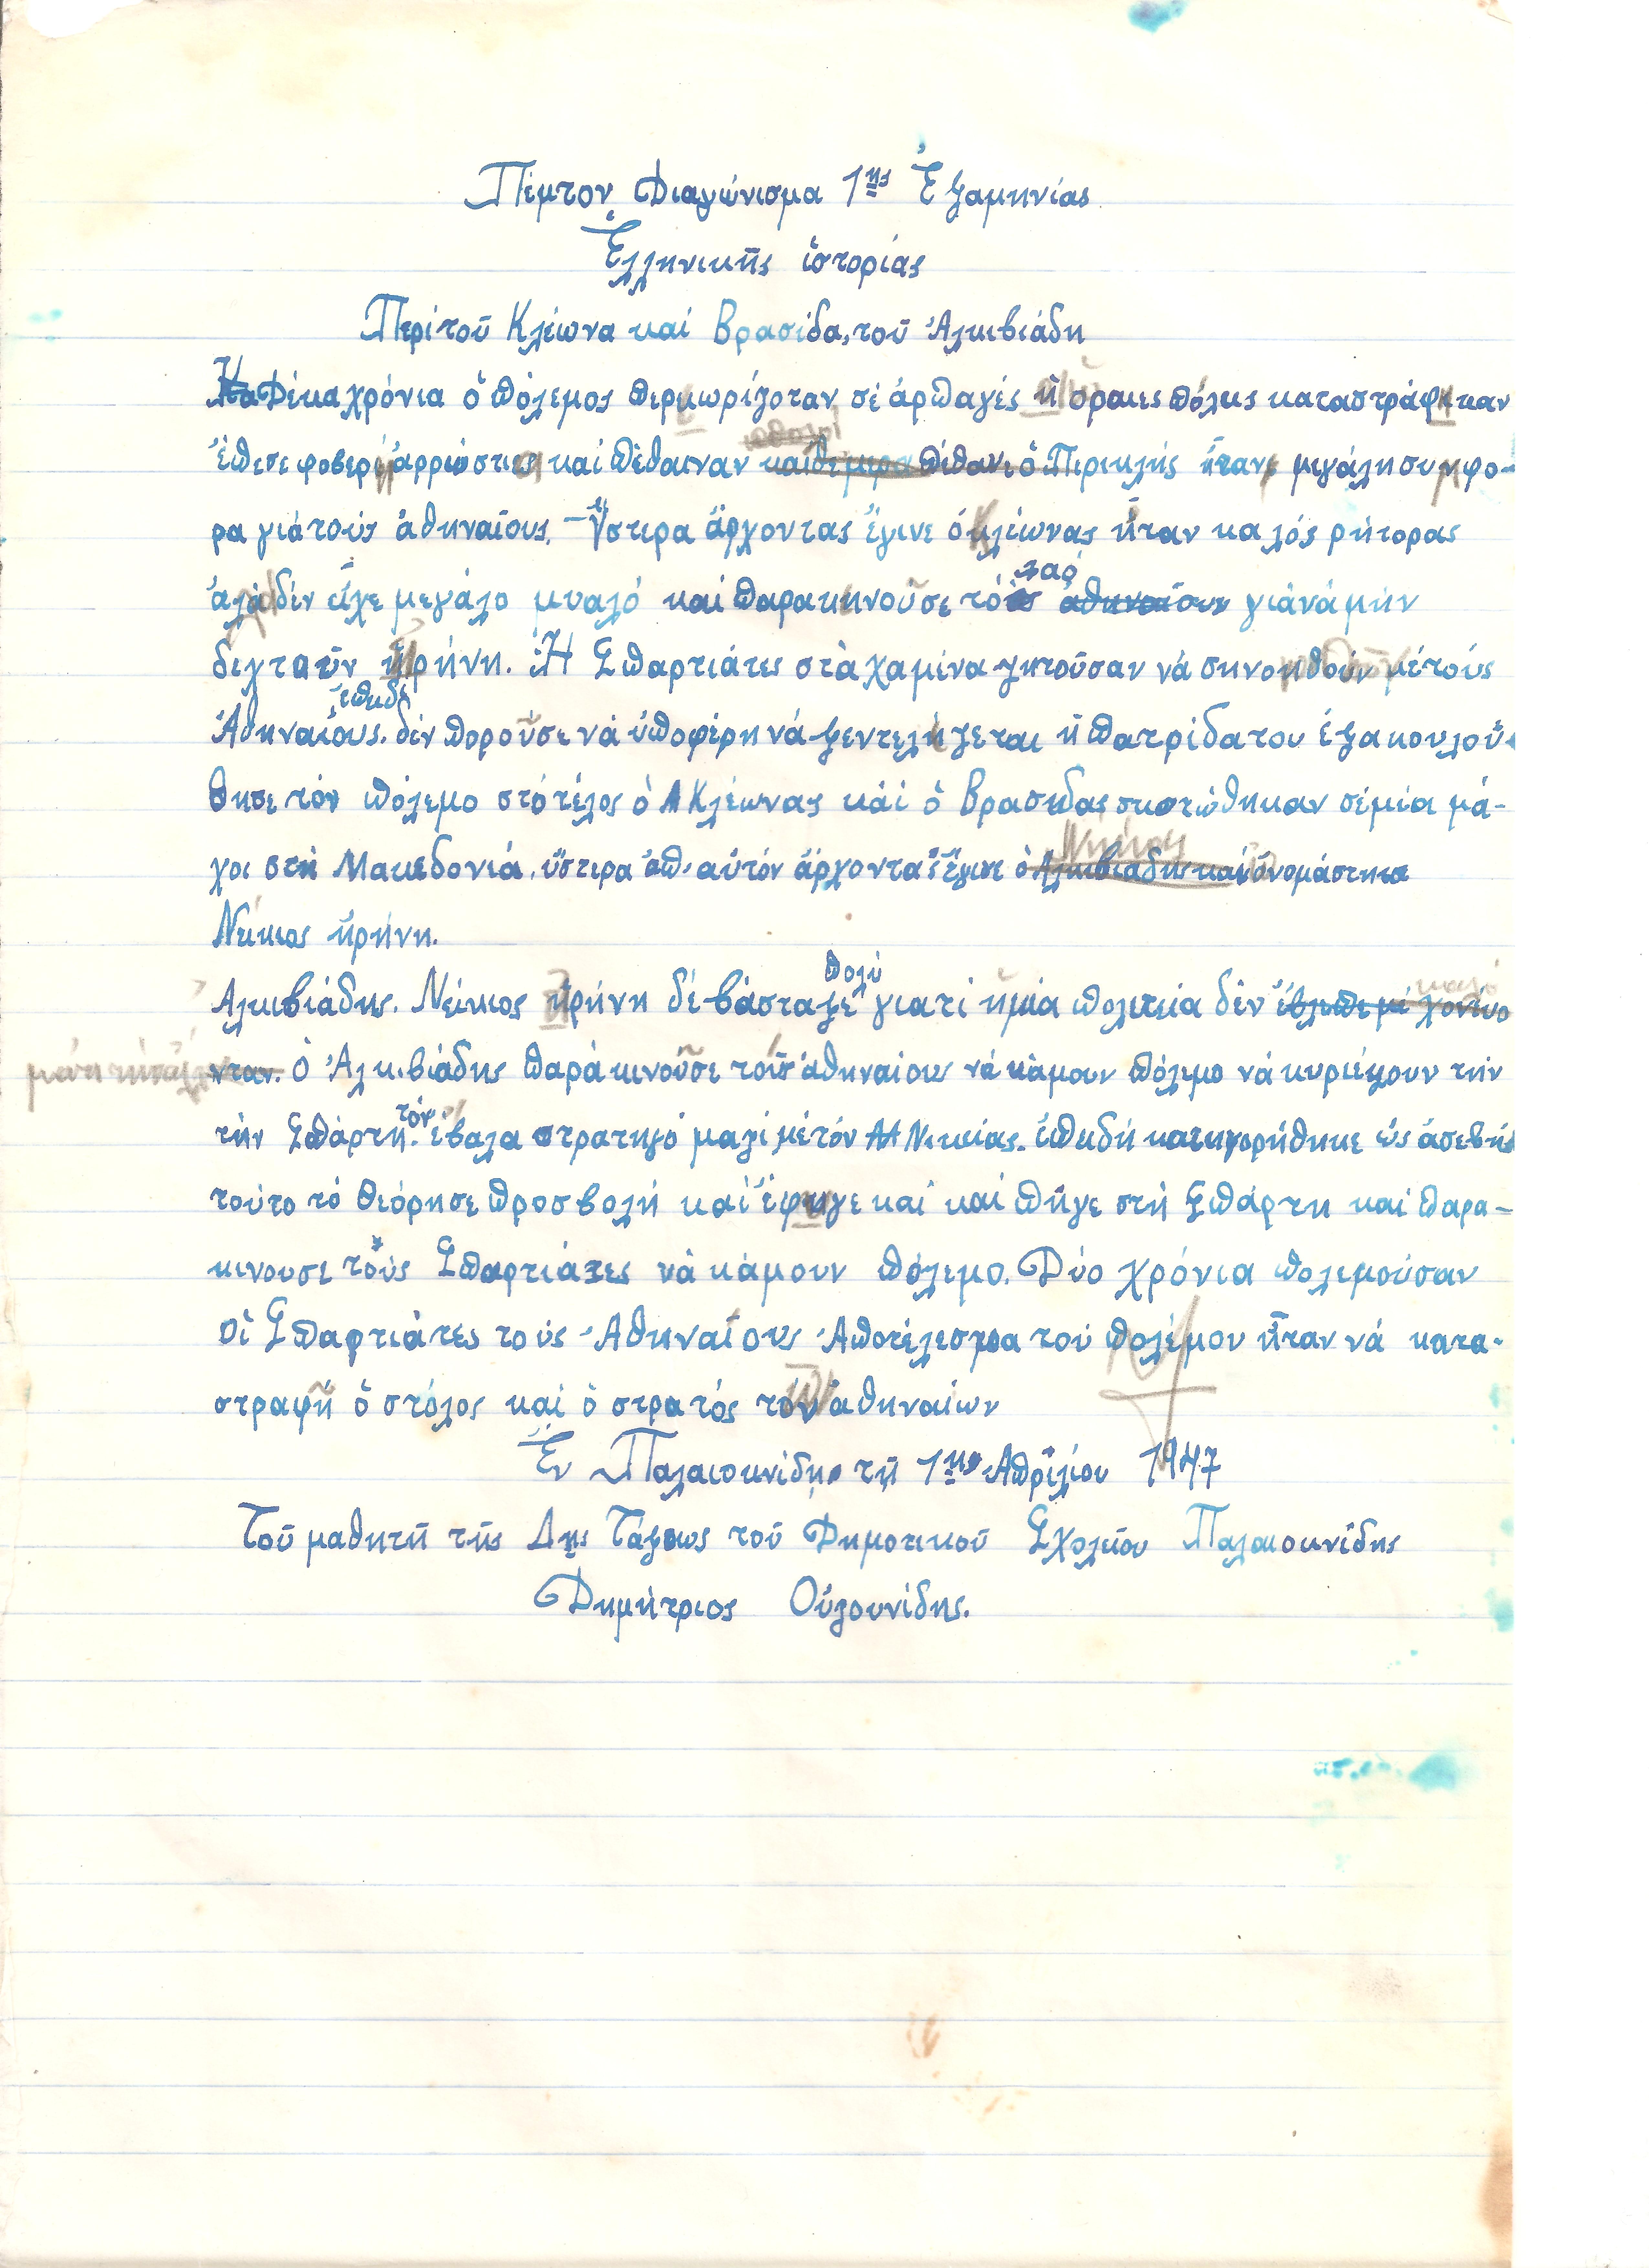 Πέμτον Διαγώνισμα 1ης Ἑξαμηνίας
Ἑλληνικῆς ἱστορίας
Περί τοῦ Κλέωνα καί Βρασίδα, τοῦ Ἀλκιβιάδη
Δέκα χρόνια ὁ πόλεμος περιωρίζοταν σέ ἁρπαγές ᾑ ὄραιες πόλεις καταστράφηκαν
ἔπεσε φοβερή ἀρρώστια καί πέθαιναν πέθανε ὁ Περικλής ἦταν μεγάλη συμφο-
ρα γιά τούς ἀθηναῖους. - Ὕστερα ἄρχοντας ἔγινε ὁ κλέωνας ἦταν καλός ρήτορας
ἀλά δέν εἶχε μεγάλο μυαλό καί παρακηνοῦσε τό λαό γιά νά μήν
δεχταῦν ἠρήνη. Ἡ Σπαρτιάτες στά χαμένα ζητοῦσαν νά σηνοηθούν μέ τούς
ἐπειδή
Ἀθηναίους. δέν ποροῦσε νά ὑποφέρη νά ξεντελήζεται ἡ πατρίδα του ἐξακουλού-
θησε τόν πόλεμο στό τέλος ὁ Κλέωνας καί ὁ Βρασηδας σκοτώθηκαν σέ μία μά-
χοι στή Μακεδονιά. ὕστερα ἀπ' αὐτόν ἄρχοντας ἔγινε ὁ Ἀλκιβιάδης καί ὀνομάστηκε
Νείκιος ἠρήνη.
πολύ
Αλκιβιάδης. Νείκιος ἠρήνη δέ βάσταξε γιατί ἡ μία πολιτεία δέν ἔβλεπε μέ
νταν. Ὁ Ἀλκιβιάδης παρά κινοῦσε τούς ἀθηναίους νά κάμουν πόλεμο νά κυριέψουν τήν
τήν Σπάρτη. τόν ἔβαλα στρατηγό μαζί μέ τόν Νικίας. ἐπειδή κατηγορήθηκε ὡς ἀσεβής
τούτο τό θεόρησε προσβολή καί ἔφηγε καί καί πῆγε στή Σπάρτη καί παρα-
κινουσε τούς Σπαρτιάτες νά κάμουν πόλεμο. Δύο χρόνια πολεμούσαν
οἱ Σπαρτιάτες τούς Ἀθηναίους Ἀποτέλεσμα τού πολέμου ἦταν νά κατα-
στραφῆ ὁ στόλος καί ὁ στρατός τόν ἀθηναίων
Ἐν Παλαιοκνίδῃ τῇ 1ῃ Ἀπρίλίου 1947
Τοῦ μαθητῆ τῆς Δης Τάξεως τοῦ Δημοτικοῦ Σχολείου Παλαιοκνίδης
Δημήτριος Οὐζουνίδης.